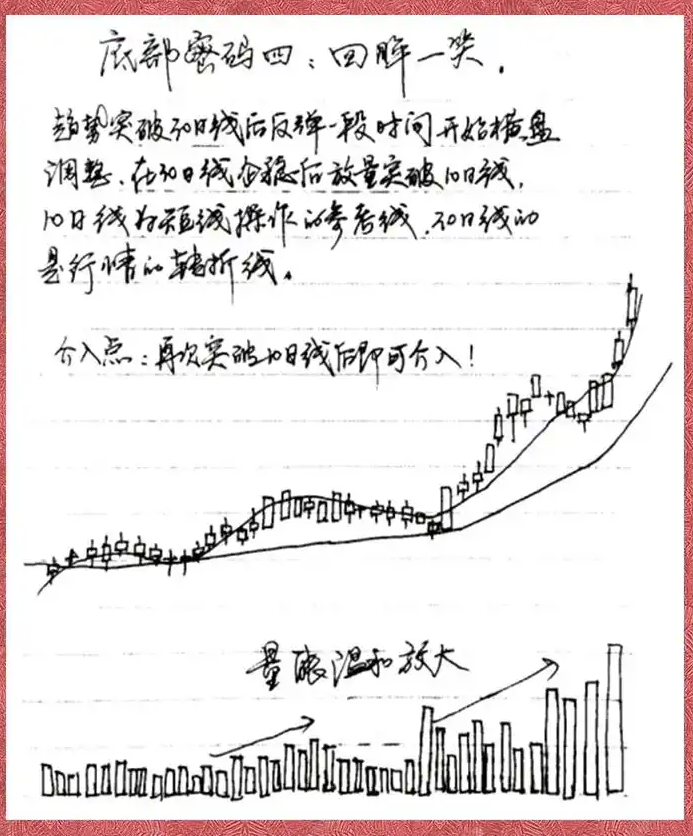 底部密码四：回眸一笑.
趋势突破30日线后反弹一段时间开始横盘
调整、在30日线企稳后放量突破10日线,
10日线为短线操作的参考线,30日线的
是行情的转折线。
介入点：再次突破10日线后即可介入！
量能温和放大